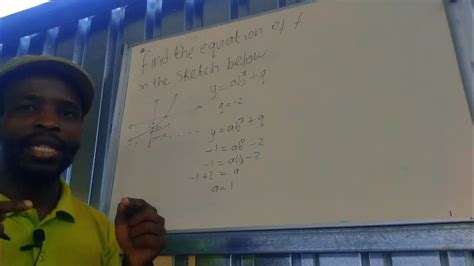 find the equation of f
in the sketch below
y = abˣ + q
q = -2
y = abˣ + q
-1 = ab⁰ - 2
-1 = a(1) - 2
-1 + 2 = a
a = 1